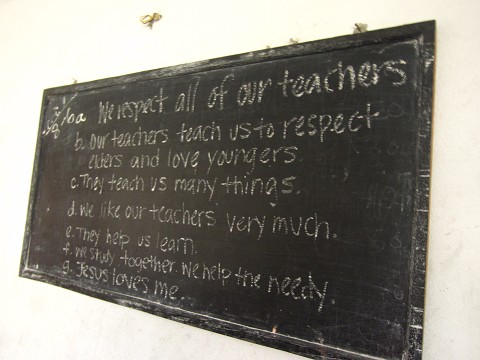 a We respect all of our teachers
b. our teachers teach us to respect
elders and love youngers.
c. They teach us many things.
d. We like our teachers very much.
e. They help us learn.
f. we study together. We help the needy.
g. Jesus loves me.